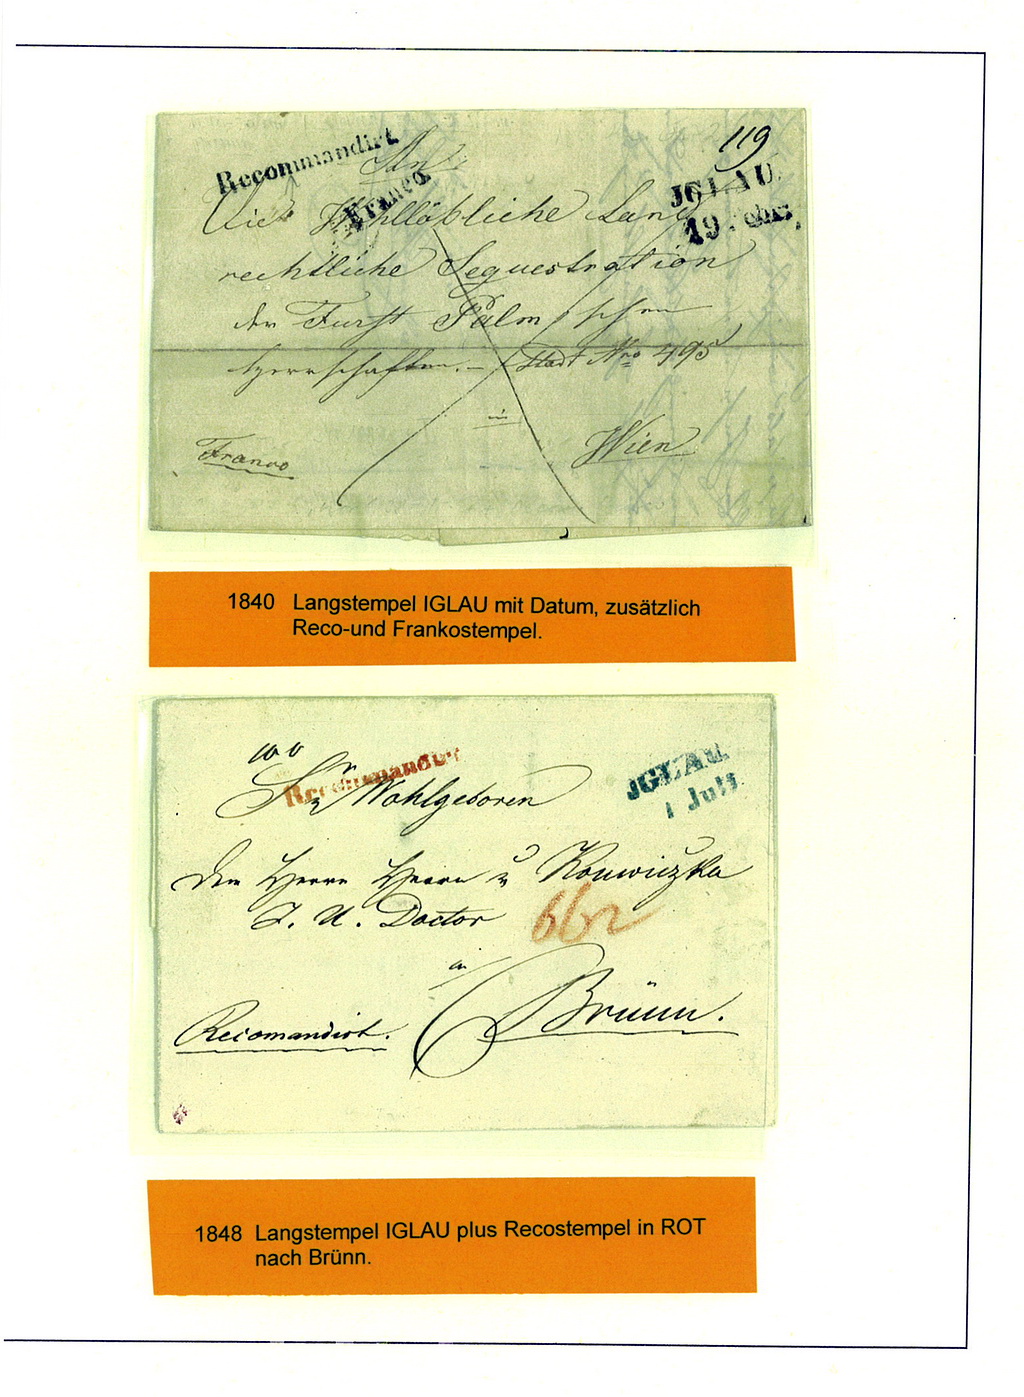 Recommandirt
119
An
Franco.
JGLAU.
19. Febr.
Wohllöbliche Land
rechtliche Sequestration
der Fürst Palm'schen
Herrschaften. – Stadt Nro 495
in
Wien
Franco
1840 Langstempel IGLAU mit Datum, zusätzlich
Reco-und Frankostempel.
Recommandirt
JGLAU
1 Juli
Wohlgeboren
dem Herrn Herrn
J. U. Doctor
in
Brünn.
Recomandirt.
1848 Langstempel IGLAU plus Recostempel in ROT
nach Brünn.